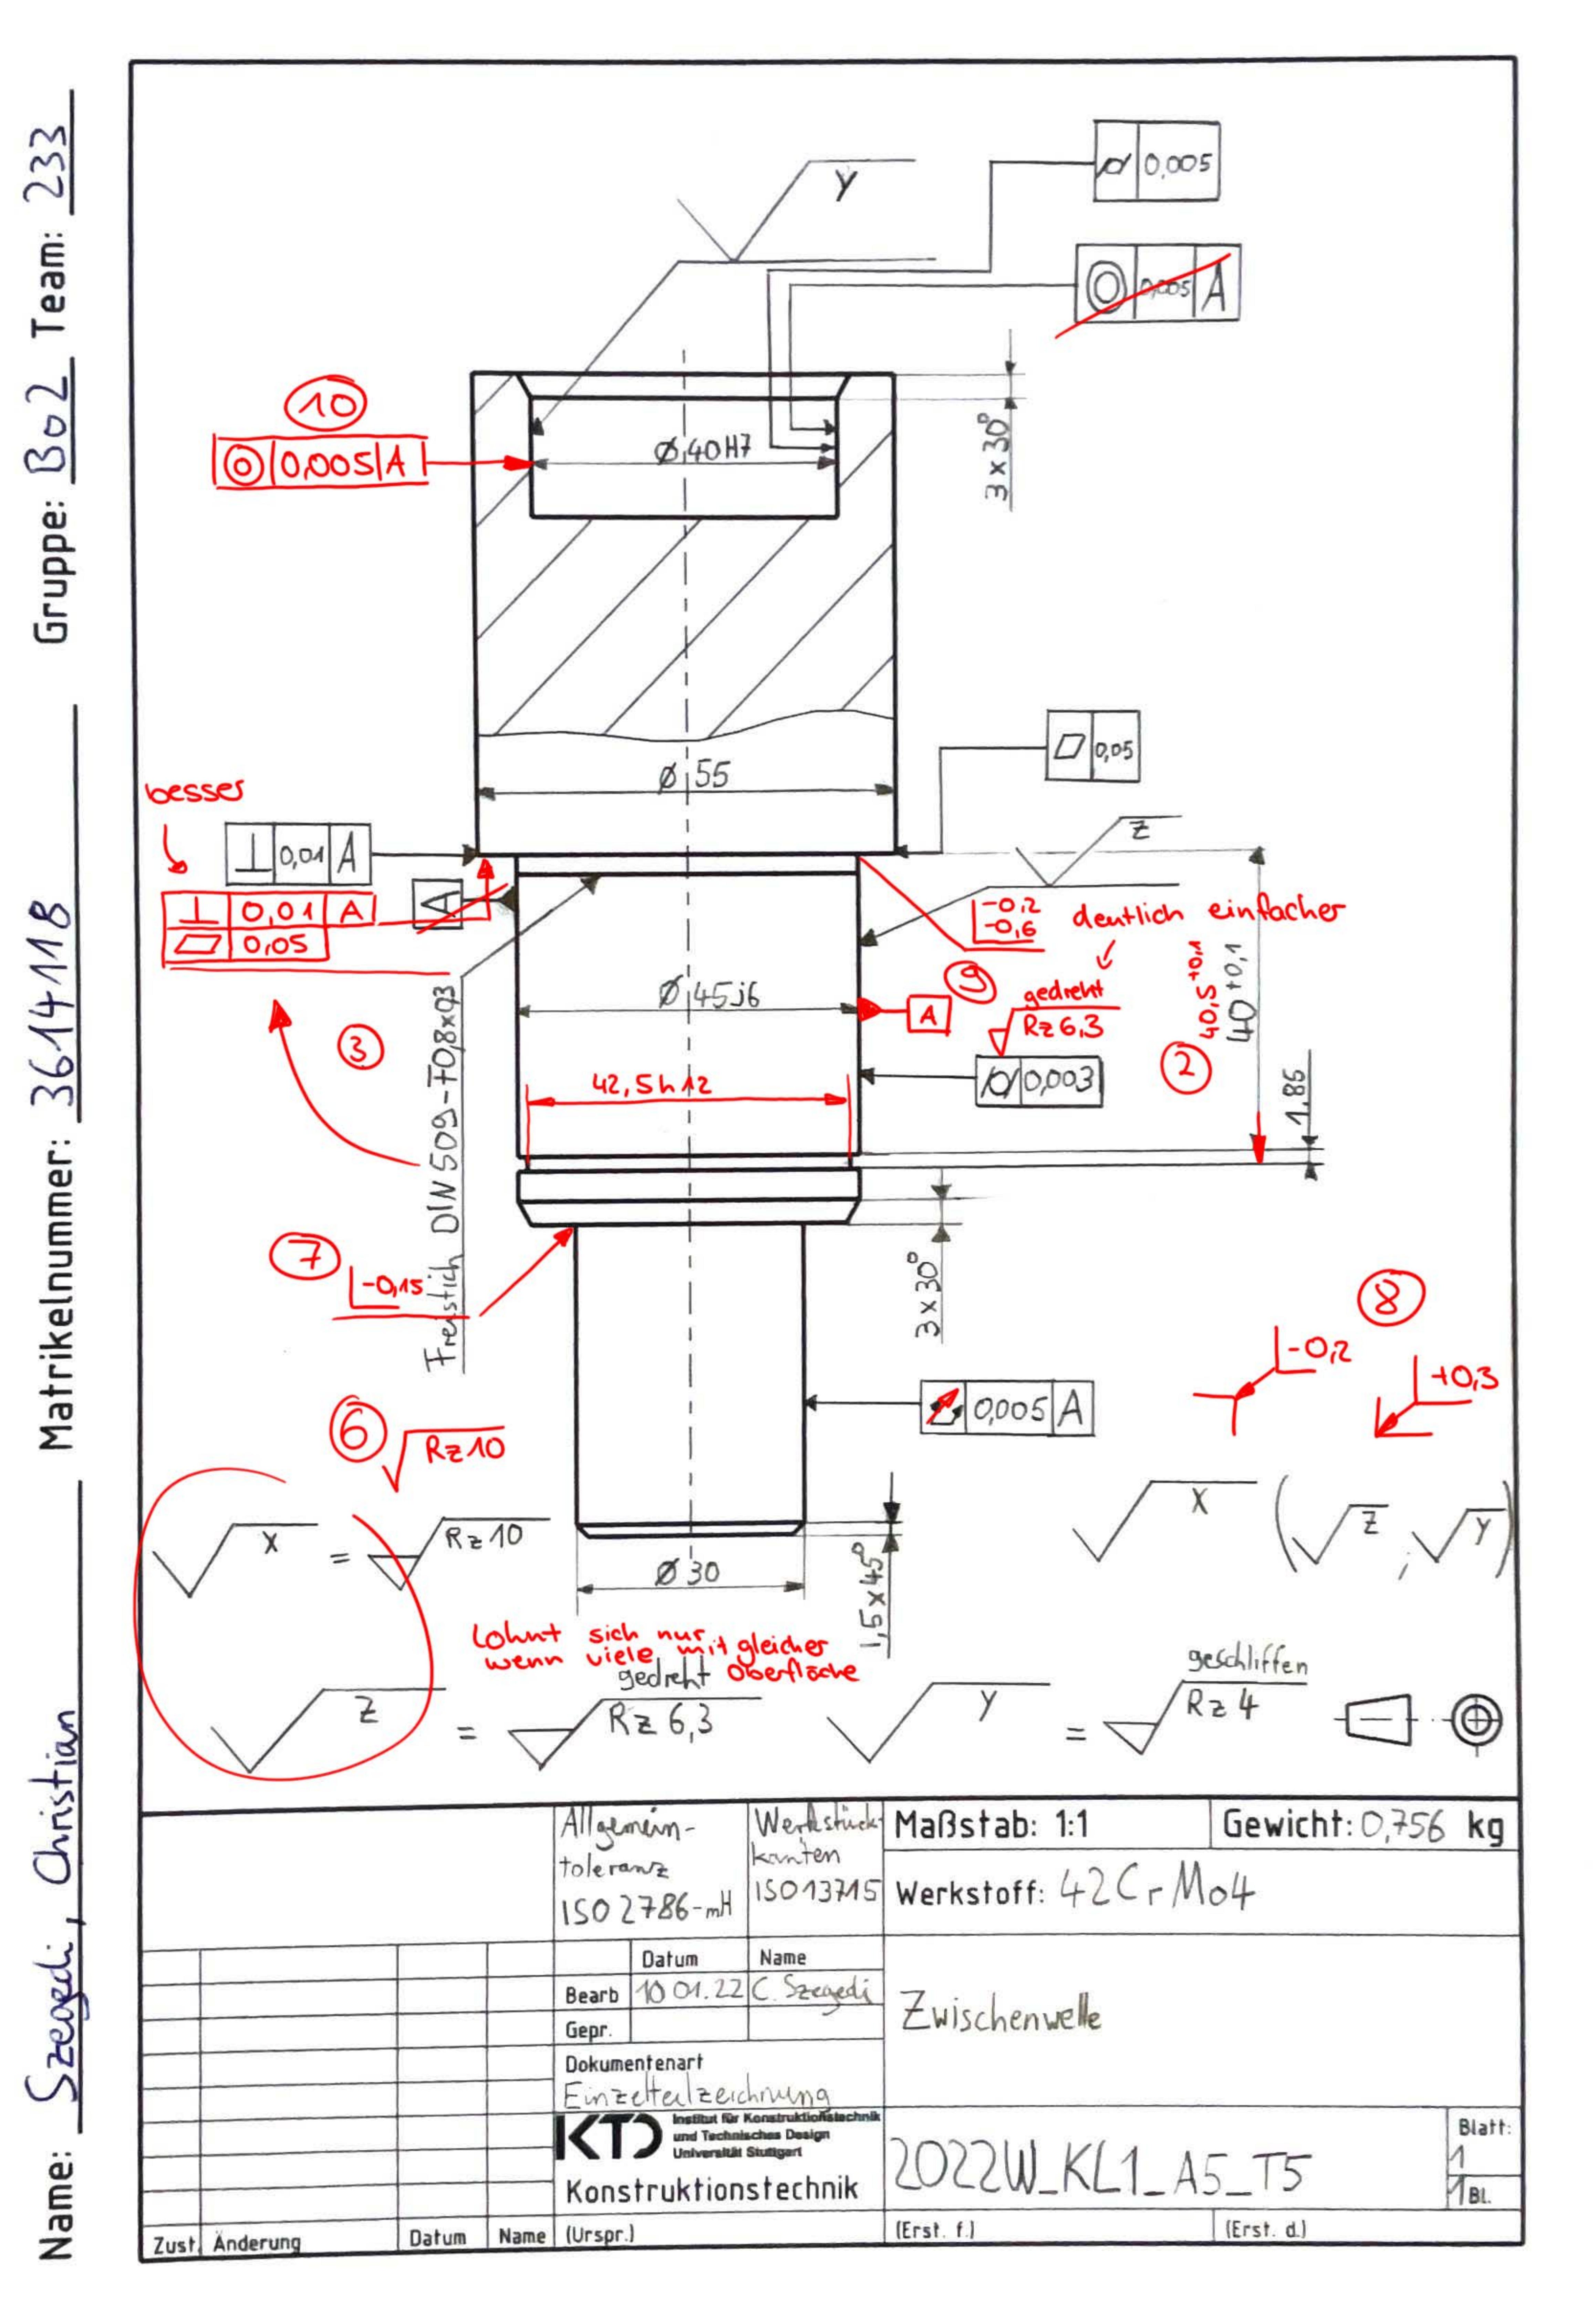 Name: Szegedi, Christian Matrikelnummer: 3614118 Gruppe: B02 Team: 233
y
0,005
0,005 A
10
0,005 A
Ø 40 H7
3 x 30°
Ø 55
0,05
besser
0,01 A
0,01 A
0,05
A
z
-0,2
-0,6
deutlich einfacher
9
gedreht
Rz 6,3
A
Ø 45 j6
40,5 +0,1
40 +0,1
2
3
0,003
42,5 h12
1,85
Freistich DIN 509-F0,8x0,3
7
-0,15
3 x 30°
8
-0,2
+0,3
0,005 A
6
Rz 10
x = Rz 10
x ( z ; y )
Ø 30
1,5 x 45°
Lohnt sich nur
wenn viele mit gleicher
Oberfläche
gedreht
z = Rz 6,3
geschliffen
y = Rz 4
Allgemein-
toleranz
ISO 2786-mH
Werkstück
kanten
ISO 13715
Maßstab: 1:1
Gewicht: 0,756 kg
Werkstoff: 42CrMo4
Datum Name
Bearb 10.01.22 C. Szegedi
Gepr.
Zwischenwelle
Dokumentenart
Einzelteilzeichnung
KTD Institut für Konstruktionstechnik
und Technisches Design
Universität Stuttgart
Konstruktionstechnik
2022W_KL1_A5_T5
Blatt:
1
1 Bl.
Zust. Änderung Datum Name (Urspr.) (Erst. f.) (Erst. d.)